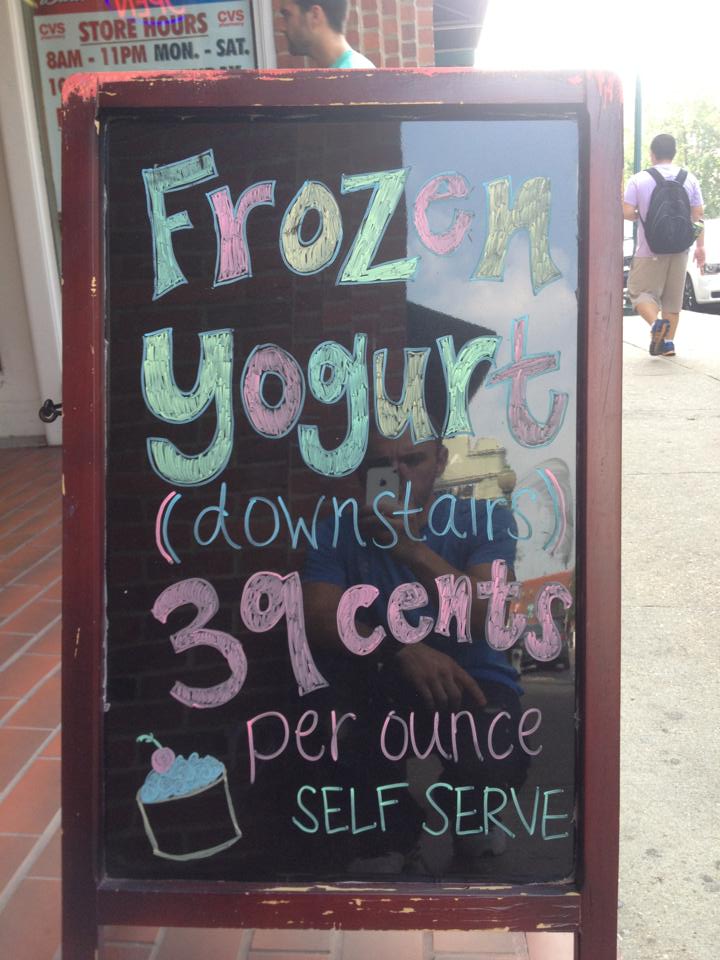 CVS pharmacy STORE HOURS CVS pharmacy
8AM - 11PM MON. - SAT.
Frozen
yogurt
(downstairs)
39 cents
per ounce
SELF SERVE